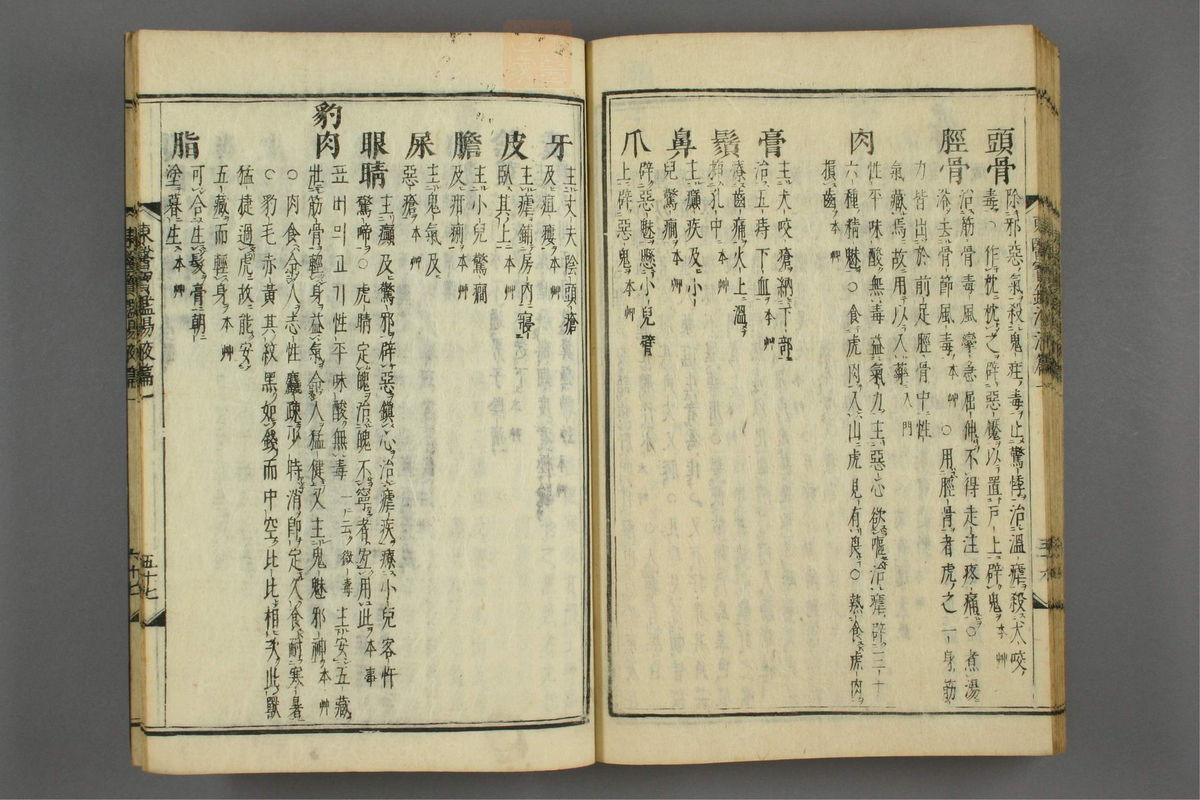 頭骨
除邪惡氣殺鬼疰毒止驚悸治溫瘧殺犬咬
毒○作枕枕之辟惡魘以置戶上辟鬼本艸
脛骨
治筋骨毒風攣急屈伸不得走注疼痛○煮湯
浴去骨節風毒本艸○用脛骨者虎之一身筋
力皆出於前足脛骨中性
氣藏焉故用以入藥入門
肉
性平味酸無毒益氣力主惡心欲嘔治瘧辟三十
六種精魅○食虎肉入山虎見有畏○熱食虎肉
損齒本艸
膏
主犬咬瘡納下部
治五痔下血本艸
鬚
療齒痛火上溫
揷孔中本艸
鼻
主癲疾及小
兒驚癇本艸
爪
辟惡魅懸小兒臂
上辟惡鬼本艸
牙
主丈夫陰頭瘡
及疽瘻本艸
皮
主瘧鋪房內寢
臥其上本艸
膽
主小兒驚癎
及疳痢本艸
屎
主鬼氣及
惡瘡本艸
眼睛
主癲及驚邪辟惡鎭心治瘧疾療小兒客忤
驚啼○虎睛定魄治魄不寧者宜用此本事
豹肉
표버의고기性平味酸無毒一云微毒主安五藏
壯筋骨輕身益氣令人猛健又主鬼魅邪神本艸
○肉食令人志性麤疎小時消卽定久食耐寒暑
○豹毛赤黃其紋黑如錢而中空比比相次此獸
猛捷過虎故能安
五藏而輕身本艸
脂
可合生髮膏朝
塗暮生本艸
東醫寶鑑湯液篇一
五十七